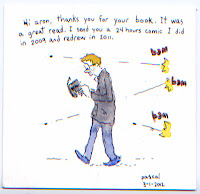 Hi aron, thank you for your book. It was
a great read. I send you a 24 hours comic I did
in 2009 and redrew in 2011.
bam
bam
bam
pascal
3-1-2012